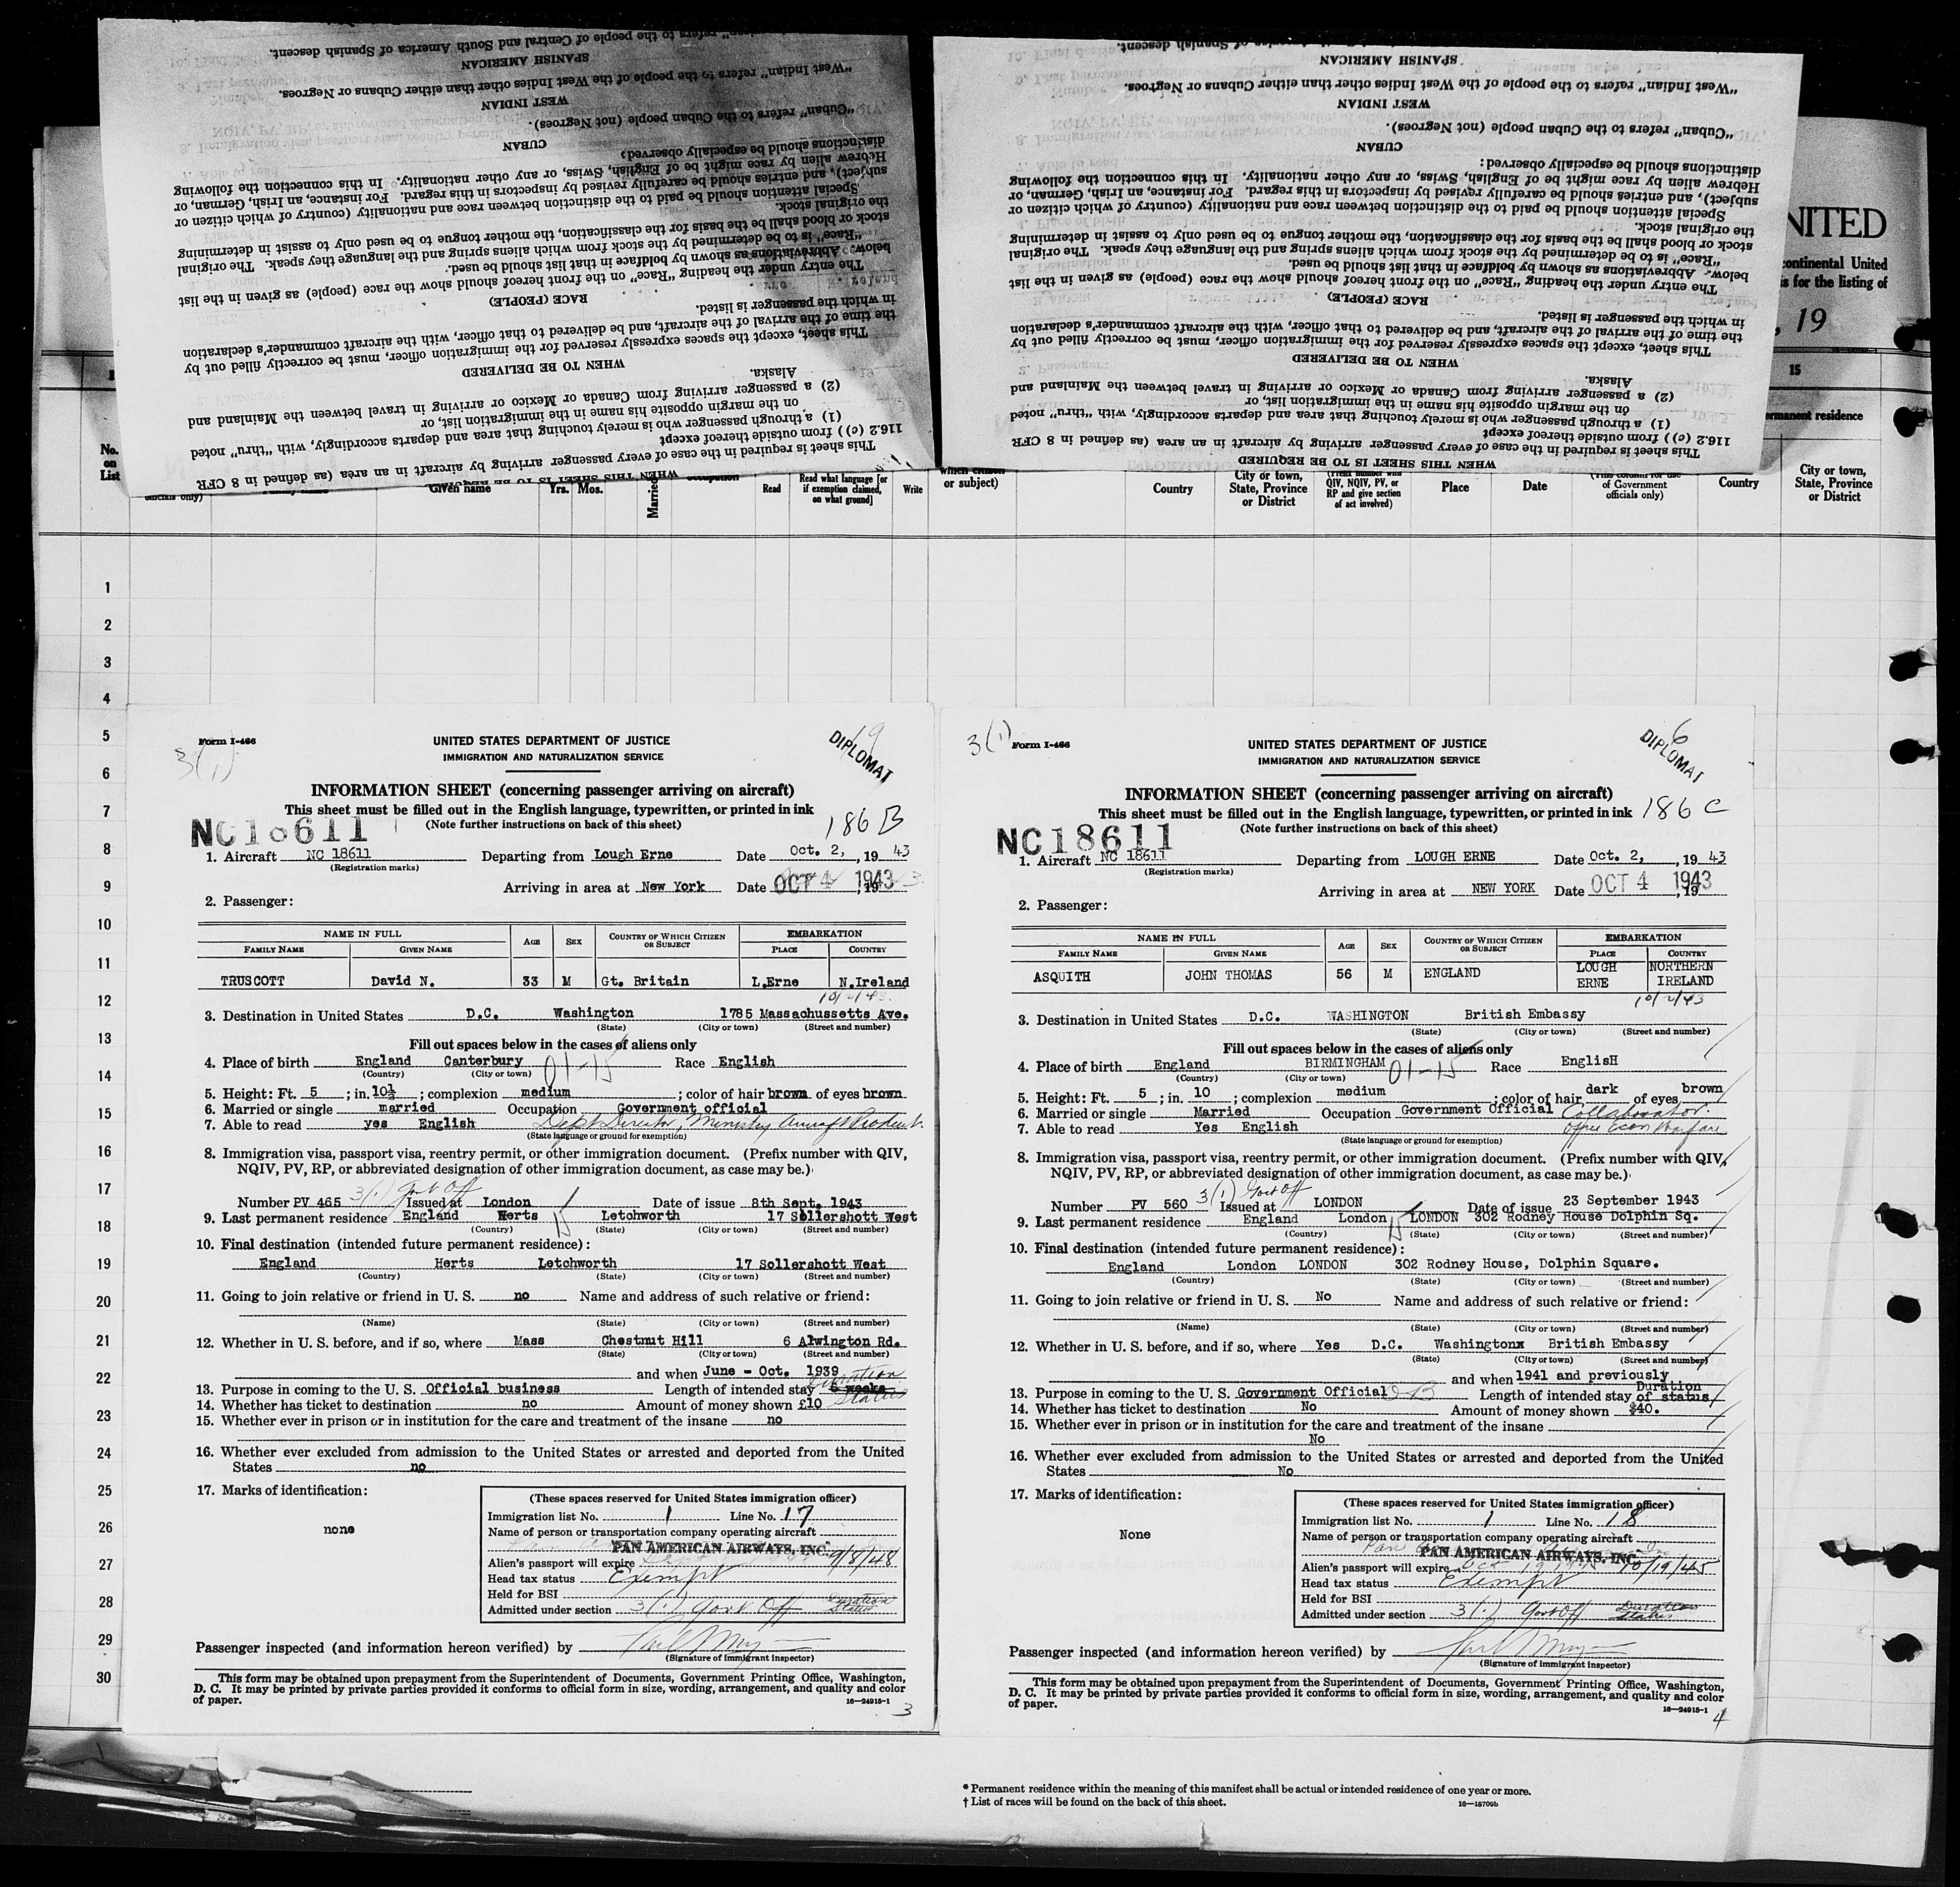 descent.
refers to the people of Central and South America of Spanish
SPANISH AMERICAN
"West Indian" refers to the people of the West Indies other than either Cubans or Negroes.
WEST INDIAN
"Cuban" refers to the Cuban people (not Negroes).
CUBAN
distinctions should be especially observed:
Hebrew alien by race might be of English, Swiss, or any other nationality. In this connection the following
subject), and entries should be carefully revised by inspectors in this regard. For instance, an Irish, German, or
Special attention should be paid to the distinction between race and nationality (country of which citizen or
the original stock.
stock or blood shall be the basis for the classification, the mother tongue to be used only to assist in determining
"Race" is to be determined by the stock from which aliens spring and the language they speak. The original
below. Abbreviations as shown by boldface in that list should be used.
The entry under the heading "Race" on the front hereof should show the race (people) as given in the list
RACE (PEOPLE)
in which the passenger is listed.
the time of the arrival of the aircraft, and be delivered to that officer, with the aircraft commander's declaration
This sheet, except the spaces expressly reserved for the immigration officer, must be correctly filled out by
WHEN TO BE DELIVERED
Alaska.
(2) a passenger arriving from Canada or Mexico or arriving in travel between the Mainland and
on the margin opposite his name in the immigration list, or
(1) a through passenger who is merely touching that area and departs accordingly, with "thru" noted
116.2 (c)) from outside thereof except
This sheet is required in the case of every passenger arriving by aircraft in an area (as defined in 8 CFR
WHEN THIS SHEET IS TO BE REQUIRED
of Spanish descent.
SPANISH AMERICAN
"West Indian" refers to the people of the West Indies other than either Cubans or Negroes.
WEST INDIAN
"Cuban" refers to the Cuban people (not Negroes).
CUBAN
distinctions should be especially observed:
Hebrew alien by race might be of English, Swiss, or any other nationality. In this connection the following
subject), and entries should be carefully revised by inspectors in this regard. For instance, an Irish, German, or
Special attention should be paid to the distinction between race and nationality (country of which citizen or
the original stock.
stock or blood shall be the basis for the classification, the mother tongue to be used only to assist in determining
"Race" is to be determined by the stock from which aliens spring and the language they speak. The original
below. Abbreviations as shown by boldface in that list should be used.
The entry under the heading "Race" on the front hereof should show the race (people) as given in the list
RACE (PEOPLE)
in which the passenger is listed.
the time of the arrival of the aircraft, and be delivered to that officer, with the aircraft commander's declaration
This sheet, except the spaces expressly reserved for the immigration officer, must be correctly filled out by
WHEN TO BE DELIVERED
Alaska.
(2) a passenger arriving from Canada or Mexico or arriving in travel between the Mainland and
on the margin opposite his name in the immigration list, or
(1) a through passenger who is merely touching that area and departs accordingly, with "thru" noted
116.2 (c)) from outside thereof except
This sheet is required in the case of every passenger arriving by aircraft in an area (as defined in 8 CFR
WHEN THIS SHEET IS TO BE REQUIRED
NITED
continental United
is for the listing of
, 19
15
rmanent residence
No. on List
officials only)
Given name
Yrs. Mos.
Married
Read
Read what language [or if exemption claimed, on what ground]
Write
which citizen or subject)
Country
City or town, State, Province or District
QIV, NQIV, PV, or RP and give section of act involved)
Place
Date
of Government officials only)
Country
City or town, State, Province or District
1
2
3
4
5
6
7
8
9
10
11
12
13
14
15
16
17
18
19
20
21
22
23
24
25
26
27
28
29
30
3(1)
Form I-466
UNITED STATES DEPARTMENT OF JUSTICE
IMMIGRATION AND NATURALIZATION SERVICE
19
DIPLOMAT
INFORMATION SHEET (concerning passenger arriving on aircraft)
This sheet must be filled out in the English language, typewritten, or printed in ink
(Note further instructions on back of this sheet)
186 B
NC18611
1. Aircraft NC 18611 Departing from Lough Erne Date Oct. 2, , 19 43
(Registration marks)
Arriving in area at New York Date OCT 4 1943 , 19
2. Passenger:
NAME IN FULL AGE SEX COUNTRY OF WHICH CITIZEN OR SUBJECT EMBARKATION
FAMILY NAME GIVEN NAME PLACE COUNTRY
TRUSCOTT David N. 33 M Gt. Britain L.Erne N.Ireland
10/2/43.
3. Destination in United States D.C. Washington 1785 Massachussetts Ave.
(State) (City or town) (Street and number)
Fill out spaces below in the cases of aliens only
4. Place of birth England Canterbury 01-15 Race English
(Country) (City or town)
5. Height: Ft. 5 ; in. 10½ ; complexion medium ; color of hair brown of eyes brown.
6. Married or single married Occupation Government official
7. Able to read yes English Dept Director, Ministry Aircraft Product.
(State language or ground for exemption)
8. Immigration visa, passport visa, reentry permit, or other immigration document. (Prefix number with QIV,
NQIV, PV, RP, or abbreviated designation of other immigration document, as case may be.)
3(1) Govt Off
Number PV 465 Issued at London Date of issue 8th Sept. 1943
9. Last permanent residence England Herts 15 Letchworth 17 Sollershott West
(Country) (State) (City or town) (Street and number)
10. Final destination (intended future permanent residence):
England Herts Letchworth 17 Sollershott West
(Country) (State) (City or town) (Street and number)
11. Going to join relative or friend in U. S. no Name and address of such relative or friend:
(Name) (State) (City or town) (Street and number)
12. Whether in U. S. before, and if so, where Mass Chestnut Hill 6 Alwington Rd.
(State) (City or town) (Street and number)
and when June - Oct. 1939
13. Purpose in coming to the U. S. Official business Length of intended stay 6 weeks Duration Status
14. Whether has ticket to destination no Amount of money shown £10
15. Whether ever in prison or in institution for the care and treatment of the insane no
16. Whether ever excluded from admission to the United States or arrested and deported from the United
States no
17. Marks of identification:
none
(These spaces reserved for United States immigration officer)
Immigration list No. 1 Line No. 17
Name of person or transportation company operating aircraft
PAN AMERICAN AIRWAYS, INC.
Alien's passport will expire 9/8/48
Head tax status Exempt
Held for BSI
Admitted under section 3(1) Govt Off Duration Status
Passenger inspected (and information hereon verified) by
(Signature of Immigrant Inspector)
This form may be obtained upon prepayment from the Superintendent of Documents, Government Printing Office, Washington,
D. C. It may be printed by private parties provided it conforms to official form in size, wording, arrangement, and quality and color
of paper.
16—24915-1
3
3(1)
Form I-466
UNITED STATES DEPARTMENT OF JUSTICE
IMMIGRATION AND NATURALIZATION SERVICE
6
DIPLOMAT
INFORMATION SHEET (concerning passenger arriving on aircraft)
This sheet must be filled out in the English language, typewritten, or printed in ink
(Note further instructions on back of this sheet)
186 C
NC18611
1. Aircraft NC 18611 Departing from LOUGH ERNE Date Oct. 2, , 19 43
(Registration marks)
Arriving in area at NEW YORK Date OCT 4 1943 , 19
2. Passenger:
NAME IN FULL AGE SEX COUNTRY OF WHICH CITIZEN OR SUBJECT EMBARKATION
FAMILY NAME GIVEN NAME PLACE COUNTRY
ASQUITH JOHN THOMAS 56 M ENGLAND LOUGH ERNE NORTHERN IRELAND
10/2/43
3. Destination in United States D.C. WASHINGTON British Embassy
(State) (City or town) (Street and number)
Fill out spaces below in the cases of aliens only
4. Place of birth England BIRMINGHAM 01-15 Race EnglisH
(Country) (City or town)
5. Height: Ft. 5 ; in. 10 ; complexion medium ; color of hair dark of eyes brown
6. Married or single Married Occupation Government Official Collaborator.
7. Able to read Yes English Office Econ Warfare
(State language or ground for exemption)
8. Immigration visa, passport visa, reentry permit, or other immigration document. (Prefix number with QIV,
NQIV, PV, RP, or abbreviated designation of other immigration document, as case may be.)
3(1) Govt Off
Number PV 560 Issued at LONDON Date of issue 23 September 1943
9. Last permanent residence England London 15 LONDON 302 Rodney House Dolphin Sq.
(Country) (State) (City or town) (Street and number)
10. Final destination (intended future permanent residence):
England London LONDON 302 Rodney House, Dolphin Square.
(Country) (State) (City or town) (Street and number)
11. Going to join relative or friend in U. S. No Name and address of such relative or friend:
(Name) (State) (City or town) (Street and number)
12. Whether in U. S. before, and if so, where Yes D.C. Washingtonx British Embassy
(State) (City or town) (Street and number)
and when 1941 and previously
13. Purpose in coming to the U. S. Government Official Length of intended stay Duration of status
14. Whether has ticket to destination No Amount of money shown $40.
15. Whether ever in prison or in institution for the care and treatment of the insane
No
16. Whether ever excluded from admission to the United States or arrested and deported from the United
States No
17. Marks of identification:
None
(These spaces reserved for United States immigration officer)
Immigration list No. 1 Line No. 18
Name of person or transportation company operating aircraft
PAN AMERICAN AIRWAYS, INC.
Alien's passport will expire 10/19/45
Head tax status Exempt
Held for BSI
Admitted under section 3(1) Govt Off Duration Status
Passenger inspected (and information hereon verified) by
(Signature of Immigrant Inspector)
This form may be obtained upon prepayment from the Superintendent of Documents, Government Printing Office, Washington,
D. C. It may be printed by private parties provided it conforms to official form in size, wording, arrangement, and quality and color
of paper.
16—24915-1
4
* Permanent residence within the meaning of this manifest shall be actual or intended residence of one year or more.
† List of races will be found on the back of this sheet.
16—18709b